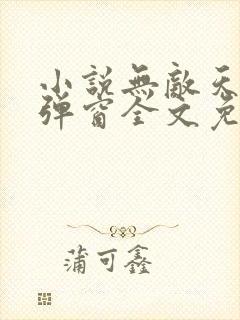 小說無敵天
彈窗全文免
蒲可鑫